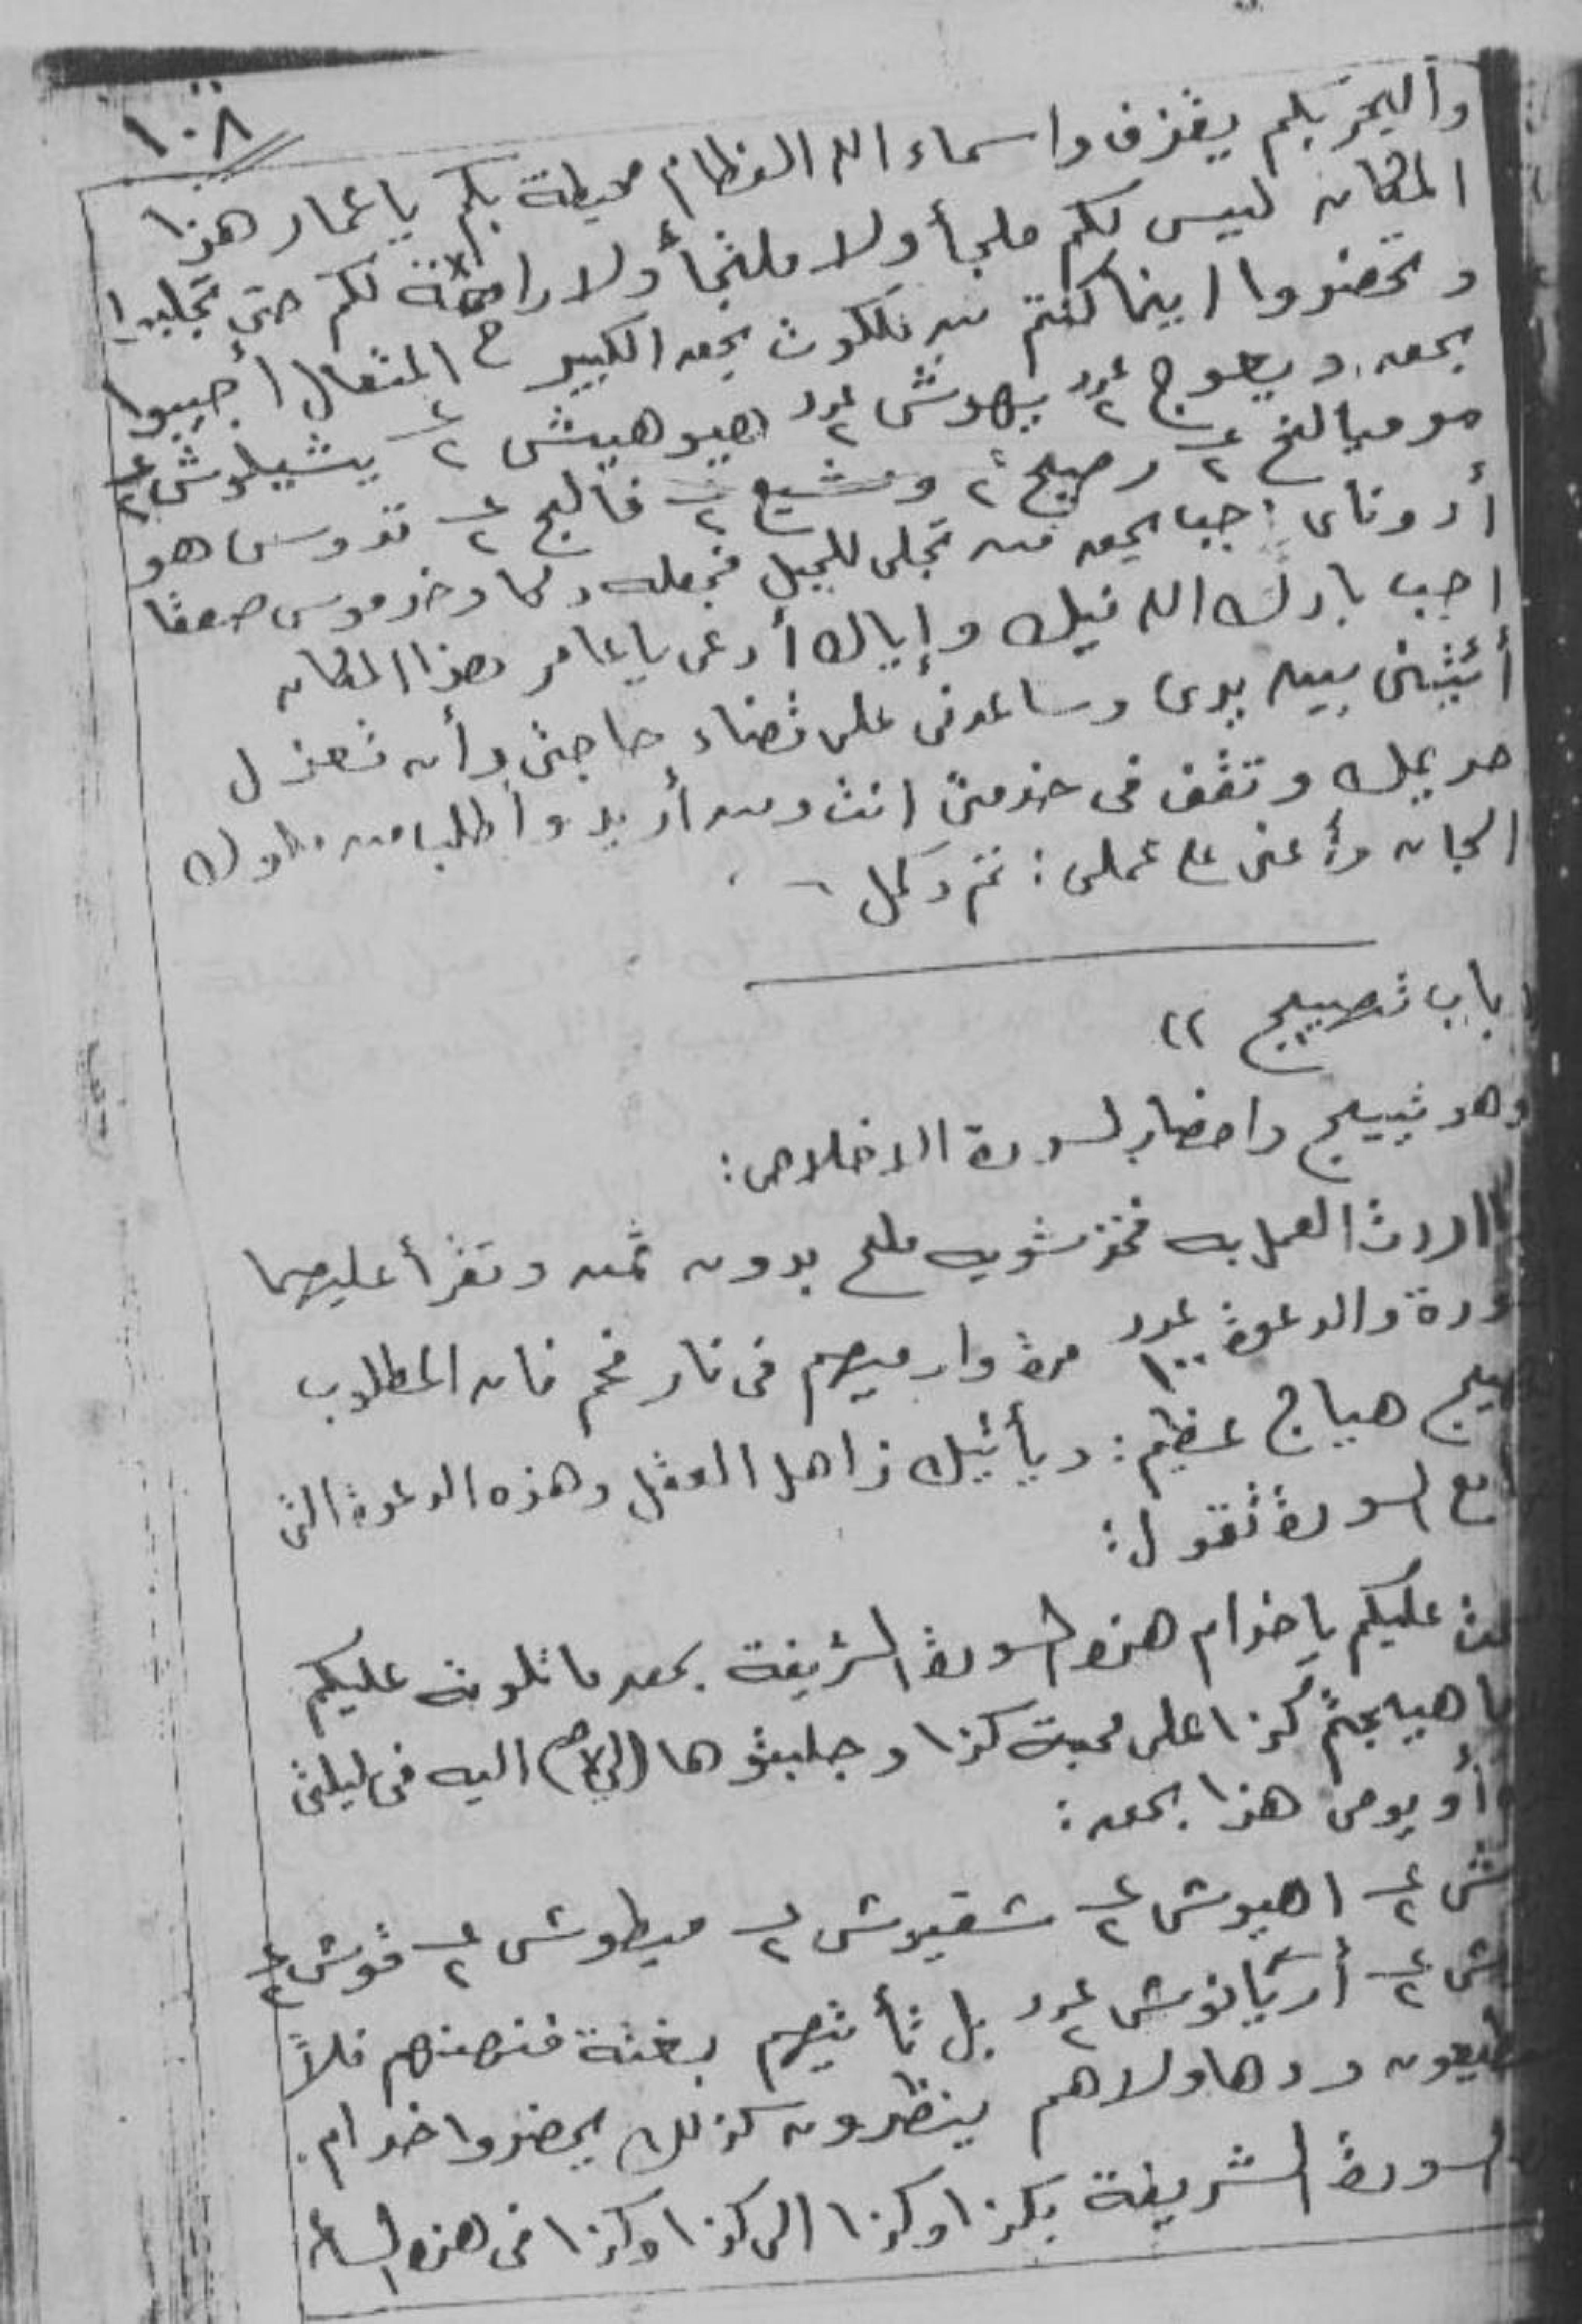 ١٠٨
واليحر بكم يقذف واسماء الله العظام محيطة بكم ياعمار هذا
المكان ليس لكم ملجأ ولا ملتجأ ولا راحة لكم حتى تجلبوا
وتحضروا اينما كنتم من ملكوت بحق الكبير المتعال أجيبوا
بحق ديعوج عدد ٢ يهوش عدد ٢ اهيوهيش ع ٢ يشيلوش ع ٢
موميالخ ع ٢ رصيج ٢ ومشيع ع ٢ فالج ع ٢ قدوس هو
أدوناى اجب بحق من تجلى للجبل فجعله دكا وخر موسى صعقا
اجب بارك الله فيك وإياك أدعى ياعامر هذا المكان
أئتينى بين يدى وساعدنى على قضاء حاجتى وأن تعزل
حريمك وتقف فى خدمتى انت ومن أريد وأطلب من ملوك
الجان وأعنى على عملى : تم وكمل
باب تهييج ٢٢
وهو تهييج واحضار لسورة الاخلاص :
اردت العمل به فخذ شويه ملح بدون ثمن وتقرأ عليهما
ورة والدعوة عدد ١٠٠ مرة وارميهم فى نار فحم فان المطلوب
هيج هياج عظيم : ويأتيك ذاهل العقل وهذه الدعوة التى
مع السورة تقول :
عليكم ياخدام هذه السورة الشريفة بحق ماتلوته عليكم
هيجتم كذا على محبة كذا وجلبتوها اليه فى ليلتى
أو يومى هذا بحق :
ش ع ٢ اهيوش ع ٢ شقيوش ع ٢ ميطوش ع ٢ قوش ع ٢
ش ع ٢ أركيانوش عدد ٢ بل تأتيهم بغتة فتبهتهم فلا
يستطيعون ردها ولاهم ينظرون كذلك يحضروا خدام
السورة الشريفة بكذا وكذا الى كذا وكذا فى هذه الساعة